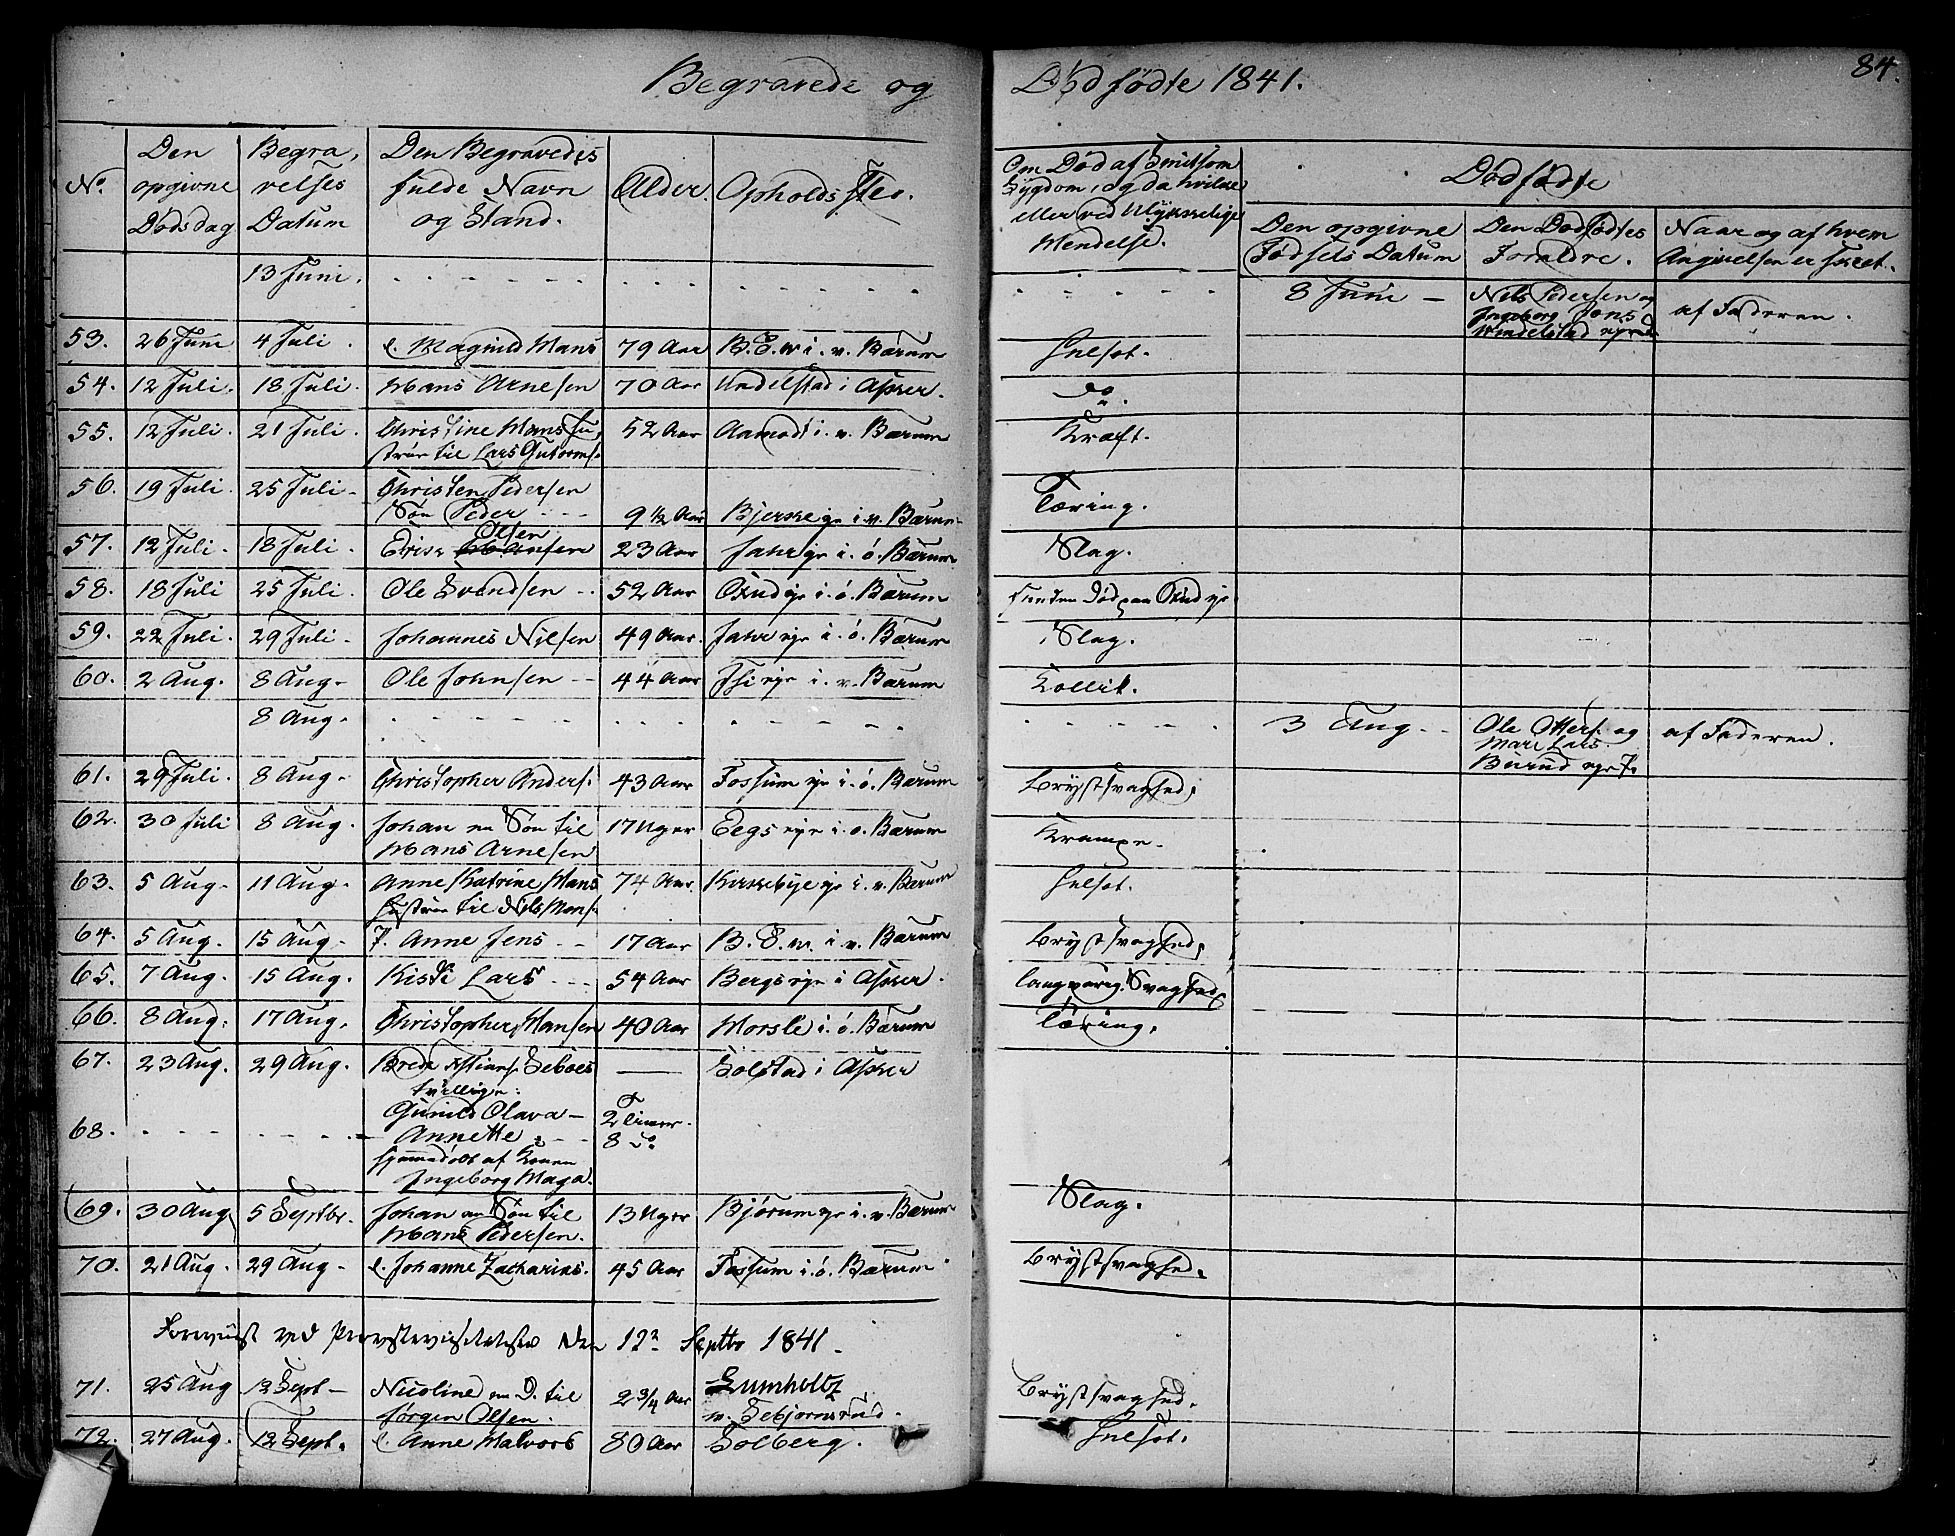 Begravede og Dødfødte 1841. 84.
No. Den opgivne Dødsdag Begravelses Datum Den Begravedes fulde Navn og Stand. Alder. Opholds Sted.
Om Død af Smitsom Sygdom, og da hvilken eller ved Ulykkelige Hendelse.
Dødfødte
Den opgivne Fødsels Datum Den Dødfødtes Forældre. Naar og af hvem Angivelsen er skeet.
13 Juni. 8 Juni — Nils Pedersen og Ingeborg Jens af Faderen.
53. 26 Juni 4 Juli. Hans 79 Aar i. v. Bærum Soelsot.
54. 12 Juli. 18 Juli. Hans Arnesen 70 Aar Undelstad i Asker. do.
55. 12 Juli. 21 Juli. Christine Hans Hustrue til Lars Gutorms. 52 Aar Aamodt i. v. Bærum Kræft.
56. 19 Juli. 25 Juli - Christen Pedersen Søn Peder 9 1/2 Aar Bjerke eje i. v. Bærum Tæring.
57. 12 Juli. 18 Juli. Olsen 23 Aar eje i. ø. Bærum Slag.
58. 18 Juli 25 Juli Ole Svendsen 52 Aar eje i. ø. Bærum funden Død paa eje
59. 22 Juli. 29 Juli - Johannes Nilsen 49 Aar. eje i. ø. Bærum Slag.
60. 2 Aug. 8 Aug - Ole Johnsen 44 Aar eje i. v. Bærum Kollik.
8 Aug. 3 Aug - Ole Otters. og Mari Lars. Burud eje af Faderen.
61. 29 Juli. 8 Aug - Christopher Anders. 43 Aar Fossum eje i. ø. Bærum Brystsvaghed,
62. 30 Juli 8 Aug. Johan en Søn til Hans Arnesen 17 Uger Eegs eje i. ø. Bærum Krampe -
63. 5 Aug - 11 Aug. Anne Katrine Hans Hustrue til Nils Hans. 74 Aar. Kirkebye eje i. v. Bærum Soelsot.
64. 5 Aug. 15 Aug - Anne Jens 17 Aar i. v. Bærum Brystsvaghed,
65. 7 Aug. 15 Aug. Kisti Lars 54 Aar Bergs eje i Asker. langvarig Svaghed
66. 8 Aug. 17 Aug. Christopher Hansen 40 Aar Horsle i. ø. Bærum Tæring.
67. 23 Aug. 29 Aug. Brede Tvillinge: Gunild Olava — 2 Timer. Solstad i Asker
68. Annette 8 do hjemmedøbt af Konen Ingeborg Haga.
69. 30 Aug. 5 Septbr. Johan en Søn til Hans Pedersen. 13 Uger Bjørum eje i. v. Bærum Slag.
70. 21 Aug. 29 Aug - Johanne Zacharias. 45 Aar Fossum i. ø. Bærum Brystsvaghed.
Foreviist ved Provstevisitatsen den 12te Septbr 1841.
71. 25 Aug 12 Sept - Nicoline en D. til Jørgen Olsen. 2 3/4 Aar Lumholtz Brystsvaghed.
72. 27 Aug. 12 Sept. Anne Halvors 80 Aar Solberg. Soelsot.